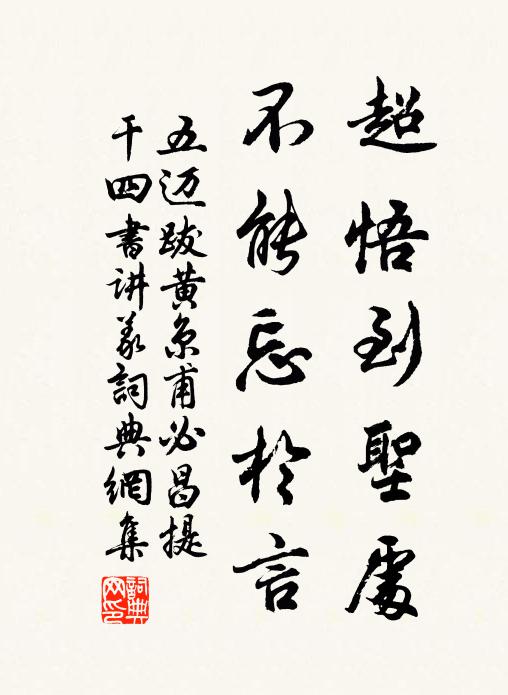 超悟到聖處
不能忘於言
五迈跋黄奂甫必昌提
干四書讲義詞典網集
詞典网印